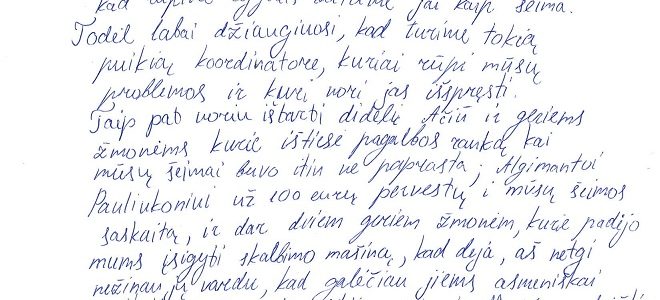 kad
jai kaip šeima.
Todėl labai džiauginuosi, kad turime tokią
puikią koordinatorę, kuriai rūpi mūsų
problemos ir kuri nori jas išspręsti.
Taip pat noriu ištarti didelį Ačiū ir geriems
žmonėms kurie ištiesė pagalbos ranką kai
mūsų šeimai buvo itin ne paprasta; Algimantui
Pauliukoniui už 100 eurų pervestų į mūsų šeimos
saskaitą, ir dar dviem geriem žmonėm, kurie padėjo
mums įsigyti skalbimo mašiną, kad deja, aš netgi
nežinau jų vardų, kad galėčiau jiems asmeniškai